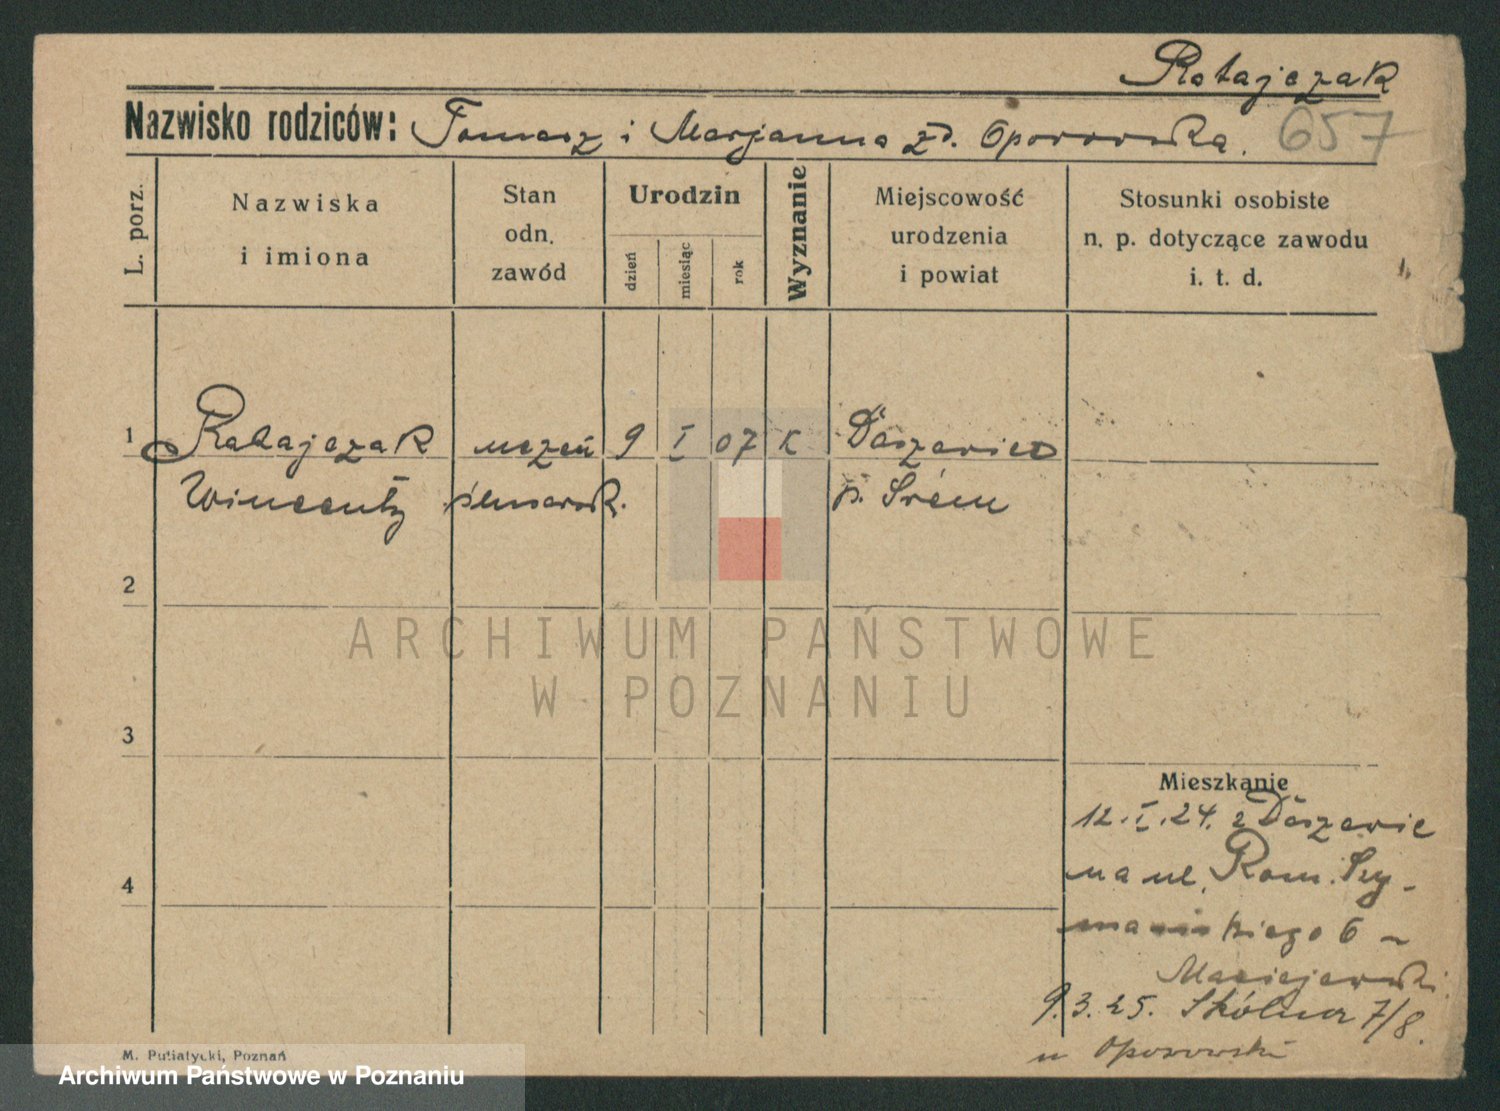 Ratajczak
Nazwisko rodziców: Tomasz i Marjanna zd. Oporowska. 657
L. porz.
Nazwiska
i imiona
Stan
odn.
zawód
Urodzin
dzień
miesiąc
rok
Wyznanie
Miejscowość
urodzenia
i powiat
Stosunki osobiste
n. p. dotyczące zawodu
i. t. d.
1 Ratajczak uczeń 9 I 07 K Daszewice
Wincenty p. Śrem
2
3
4
ARCHIWUM PAŃSTWOWE
W POZNANIU
Mieszkanie
12.I.24. z Daszewic
na ul. Rom. Szy-
mańskiego 6 –
Maciejewski.
9.3.25. Skólna 7/8.
u Oporowski
M. Putiatycki, Poznań
Archiwum Państwowe w Poznaniu